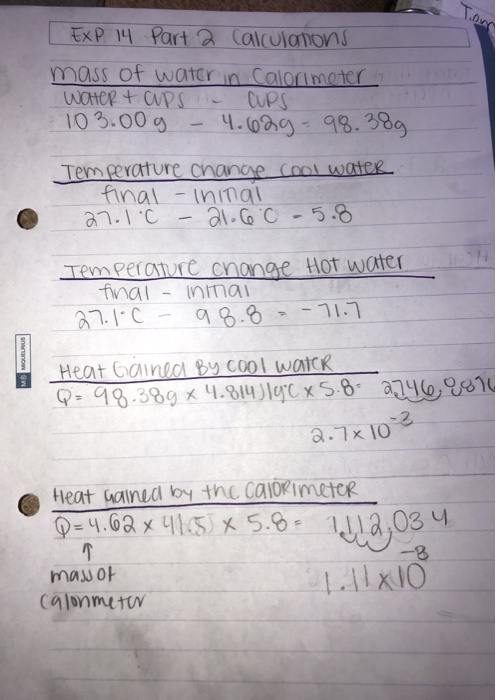 Tom
EXP. 14 Part 2 Calculations
mass of water in Calorimeter
water + cups - cups
103.00g - 4.62g = 98.38g
Temperature change cool water
final - initial
27.1°C - 21.6°C - 5.8
Temperature change Hot water
final - initial
27.1°C - 98.8 = -71.7
Heat Gained By cool water
Q = 98.38g x 4.814J/g°C x 5.8 =
2.7 x 10⁻³
MIQUELRIUS
Heat gained by the calorimeter
Q = 4.62 x 41.5 x 5.8 = 1,112,034
↑
mass of
calorimeter
1.11 x 10⁻⁸